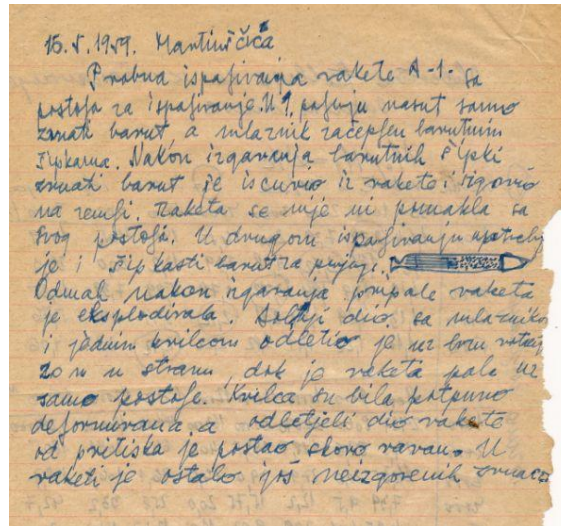 15. V. 1959. Martinščica
Probna ispaljivanja rakete A-1. sa
postolja za ispaljivanje. U 1. punjenju nasut samo
zrnati barut a mlaznik začepljen barutnim
šipkama. Nakon izgaranja barutnih šipki
zrnati barut je iscurio iz rakete i izgorio
na zemlji. Raketa se nije ni pomakla sa
svog postolja. U drugom ispaljivanju
je i šipkasti barut za
Odmah nakon izgaranja pripale raketa
je eksplodirala. Dolnji dio sa
i jednim krilcem odletio je uz
20 m u stranu, dok je raketa pala uz
samo postolje. Krilca su bila potpuno
deformirana a odletjeli dio rakete
od pritiska je postao skoro ravan. U
raketi je ostalo još neizgorenih zrnaca